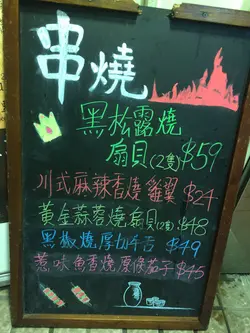 串燒
黑松露燒
扇貝(2隻) $59
川式麻辣香燒雞翼 $24
黃金蒜蓉燒扇貝(2隻) $48
黑椒燒厚切牛舌 $49
惹味魚香燒原條茄子 $45